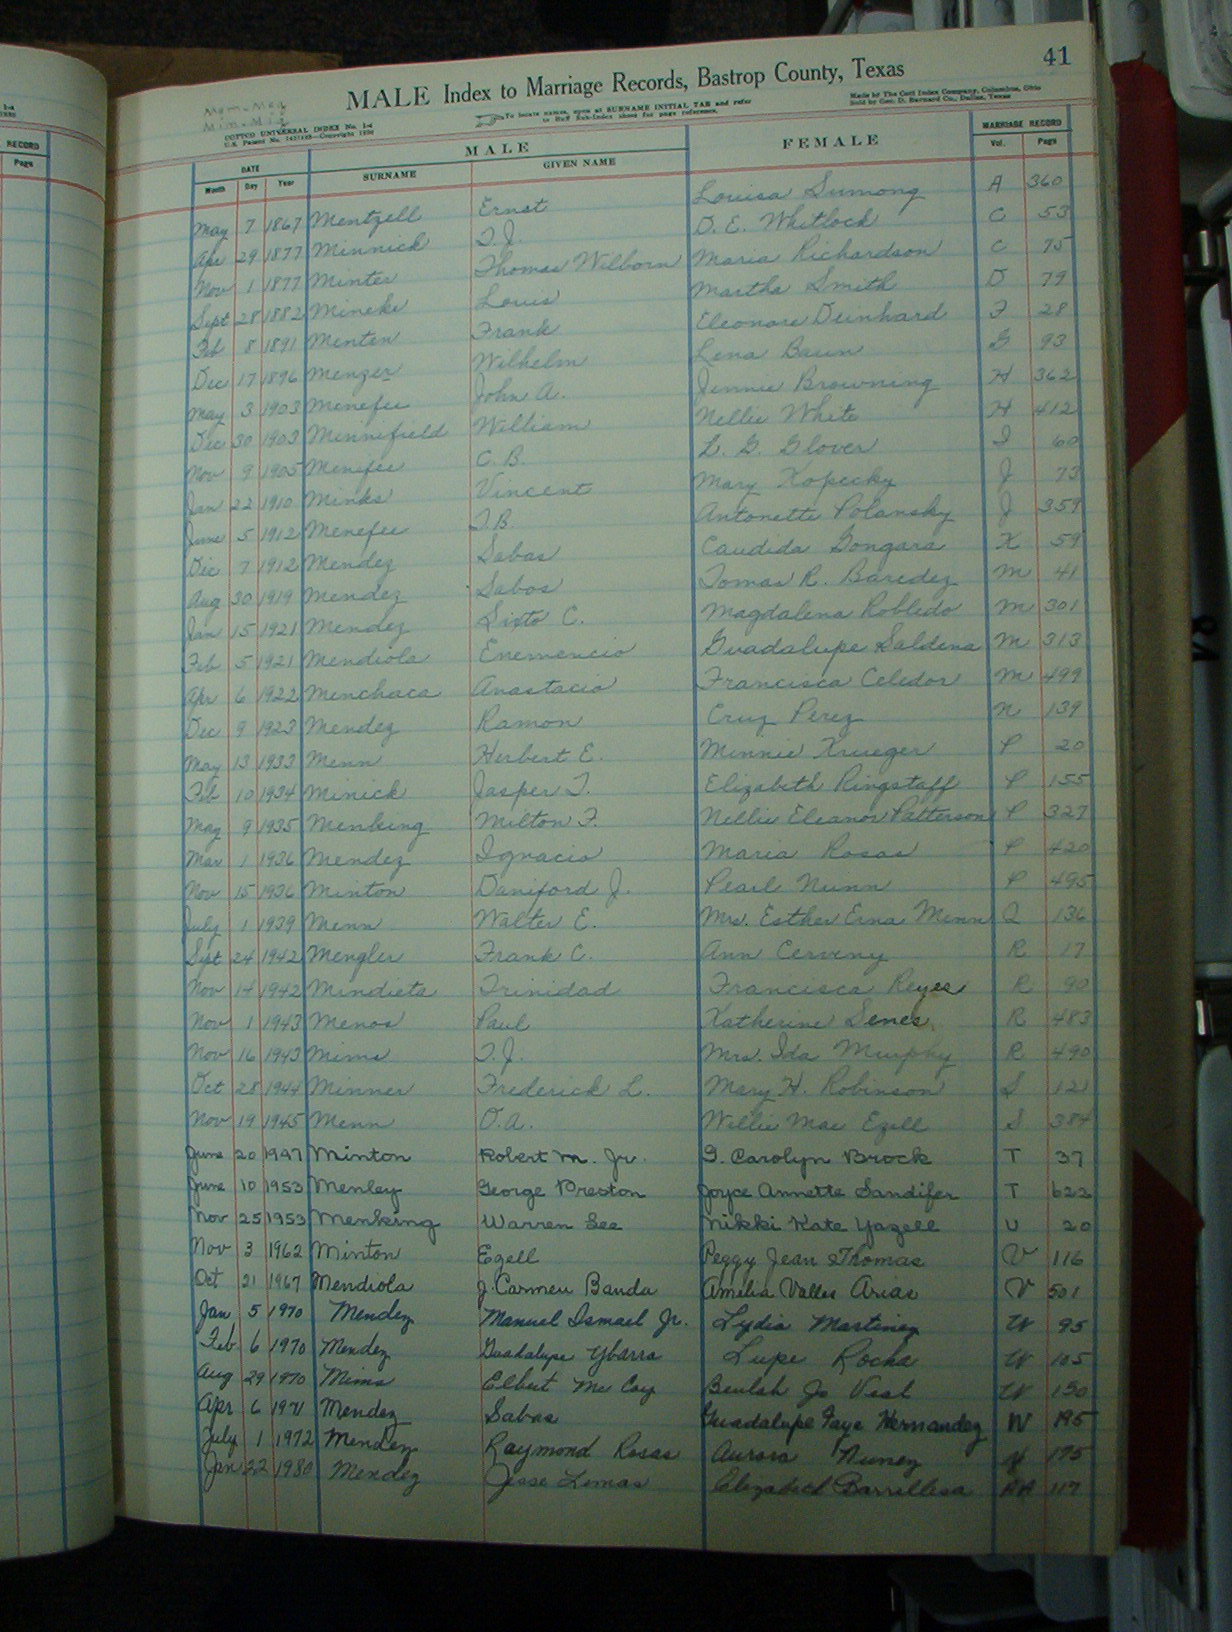 41
MALE Index to Marriage Records, Bastrop County, Texas
Mem-Men
Mim-Min
COTTCO UNIVERSAL INDEX No. 1-4
To locate names, open at SURNAME INITIAL TAB and refer
to Buff Sub-Index sheet for page references.
Made by The Cott Index Company, Columbus, Ohio
Sold by Geo. D. Barnard Co., Dallas, Texas
RECORD
Page
DATE MALE FEMALE MARRIAGE RECORD
Month Day Year SURNAME GIVEN NAME Vol. Page
May 7 1867 Mentzell Ernst Louisa Sumong A 360
Apr 29 1877 Minnick T. J. D. E. Whitlock C 53
Nov 1 1877 Minter Thomas Wilborn Maria Richardson C 75
Sept 28 1882 Mineke Louis Martha Smith D 79
Feb 8 1891 Menten Frank Eleonore Deinhard F 28
Dec 17 1896 Menzer Wilhelm Lena Baun G 93
May 3 1903 Menefee John A. Jennie Browning H 362
Dec 30 1903 Minnifield William Nellie White H 412
Nov 9 1905 Menefee C. B. L. G. Glover I 60
Jan 22 1910 Minks Vincent Mary Kopecky J 73
June 5 1912 Menefee T. B. Antonette Polansky J 359
Dec 7 1912 Mendez Sabas Candida Gongara K 59
Aug 30 1919 Mendez Sabos Tomas R. Baredez M 41
Jan 15 1921 Mendez Sixto C. Magdalena Robledo M 301
Feb 5 1921 Mendiola Enemencio Guadalupe Saldena M 313
Apr 6 1922 Menchaca Anastacio Francisca Celedor M 499
Dec 9 1923 Mendez Ramon Cruz Perez N 139
May 13 1933 Menn Herbert E. Minnie Krueger P 20
Feb 10 1934 Minick Jasper T. Elizabeth Ringstaff P 155
May 9 1935 Menking Milton F. Nellie Eleanor Patterson P 327
Mar 1 1936 Mendez Ignacio Maria Rosas P 420
Nov 15 1936 Minton Daniford J. Pearl Nunn P 495
July 1 1939 Menn Walter E. Mrs. Esther Erna Menn Q 136
Sept 24 1942 Mengler Frank C. Ann Cerveny R 17
Nov 14 1942 Mindieta Trinidad Francisca Reyes R 90
Nov 1 1943 Menos Paul Katherine Senes R 483
Nov 16 1943 Mims T. J. Mrs. Ida Murphy R 490
Oct 28 1944 Minner Frederick L. Mary H. Robinson S 121
Nov 19 1945 Menn O. A. Willie Mae Ezell S 384
June 20 1947 Minton Robert M. Jr. G. Carolyn Brock T 37
June 10 1953 Menley George Preston Joyce Annette Sandifer T 622
Nov 25 1953 Menking Warren Lee Nikki Kate Yazell U 20
Nov 3 1962 Minton Ezell Peggy Jean Thomas V 116
Oct 21 1967 Mendiola J. Carmen Banda Amelia Valles Arias V 501
Jan 5 1970 Mendez Manuel Ismael Jr. Lydia Martinez W 95
Feb. 6 1970 Mendez Guadalupe Ybarra Lupe Rocha W 105
Aug 29 1970 Mims Elbert Mc Coy Beulah Jo Vest W 150
Apr 6 1971 Mendez Sabas Guadalupe Faye Hernandez W 195
July 1 1972 Mendez Raymond Rosas Aurora Nunez 175
Jan 22 1980 Mendez Jesse Lemas Elizabeth 117